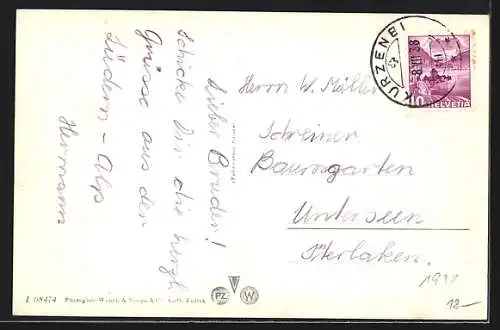 Lieber Bruder!
schicke Dir die herzl
Grüsse aus der
Lüdern-Alp
Hermann
Herrn W. Müller
Schreiner
Baumgarten
Unterseen
Interlaken.
KURZENEI
8.VII.38
10
HELVETIA
1938
18-
L 08474 Photoglob-Wehrli & Vouga & Co. A.G. Zürich
PZ
W